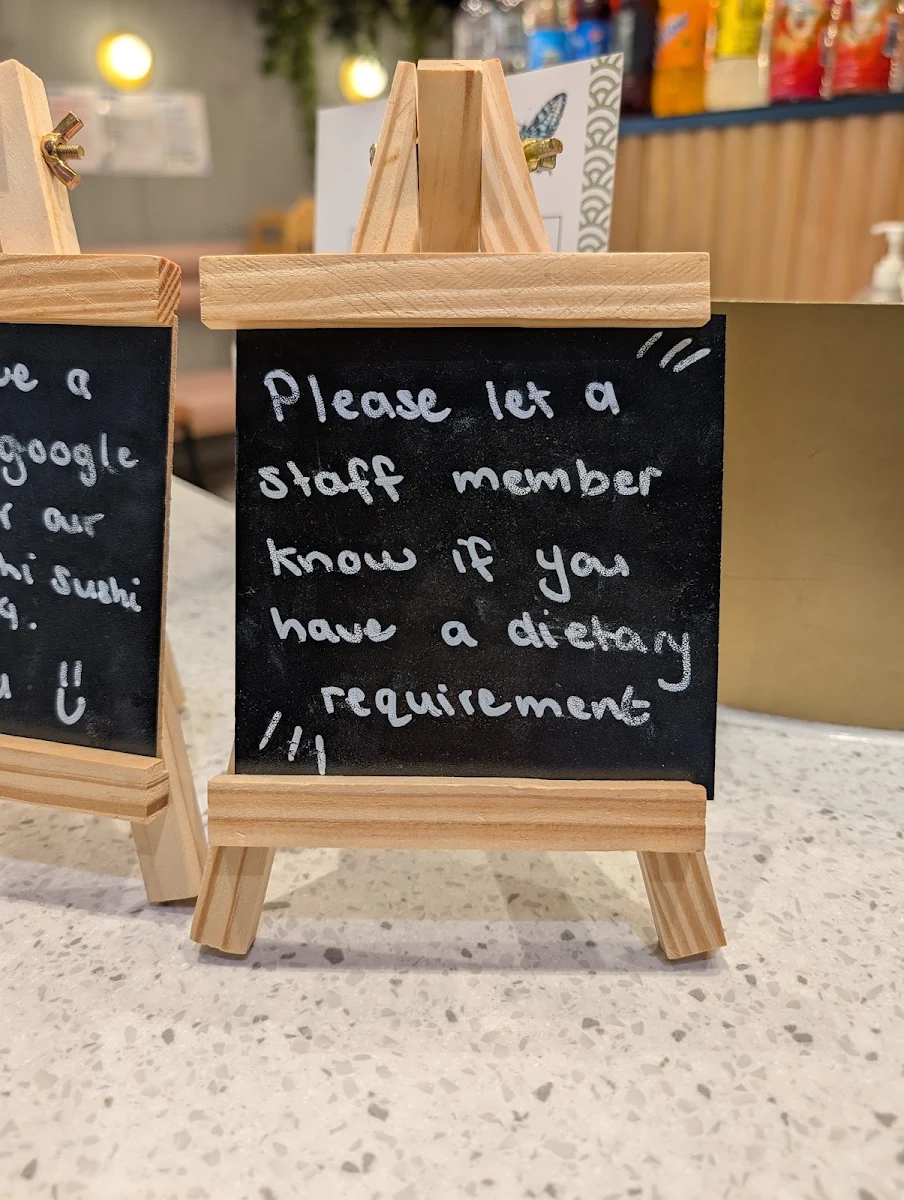 a
google
our
sushi
Please let a
staff member
know if you
have a dietary
requirement